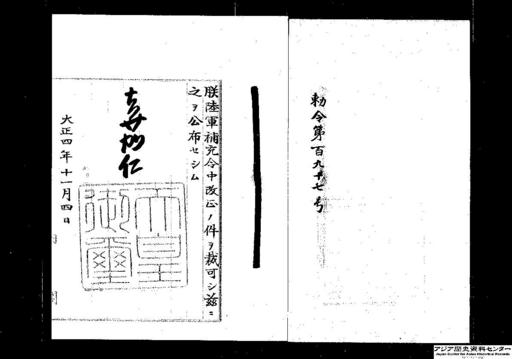 勅令第百九十七号
朕陸軍補充令中改正ノ件ヲ裁可シ茲ニ
之ヲ公布セシム
嘉仁
天皇
御璽
大正四年十一月四日
アジア歴史資料センター
Japan Center for Asian Historical Records